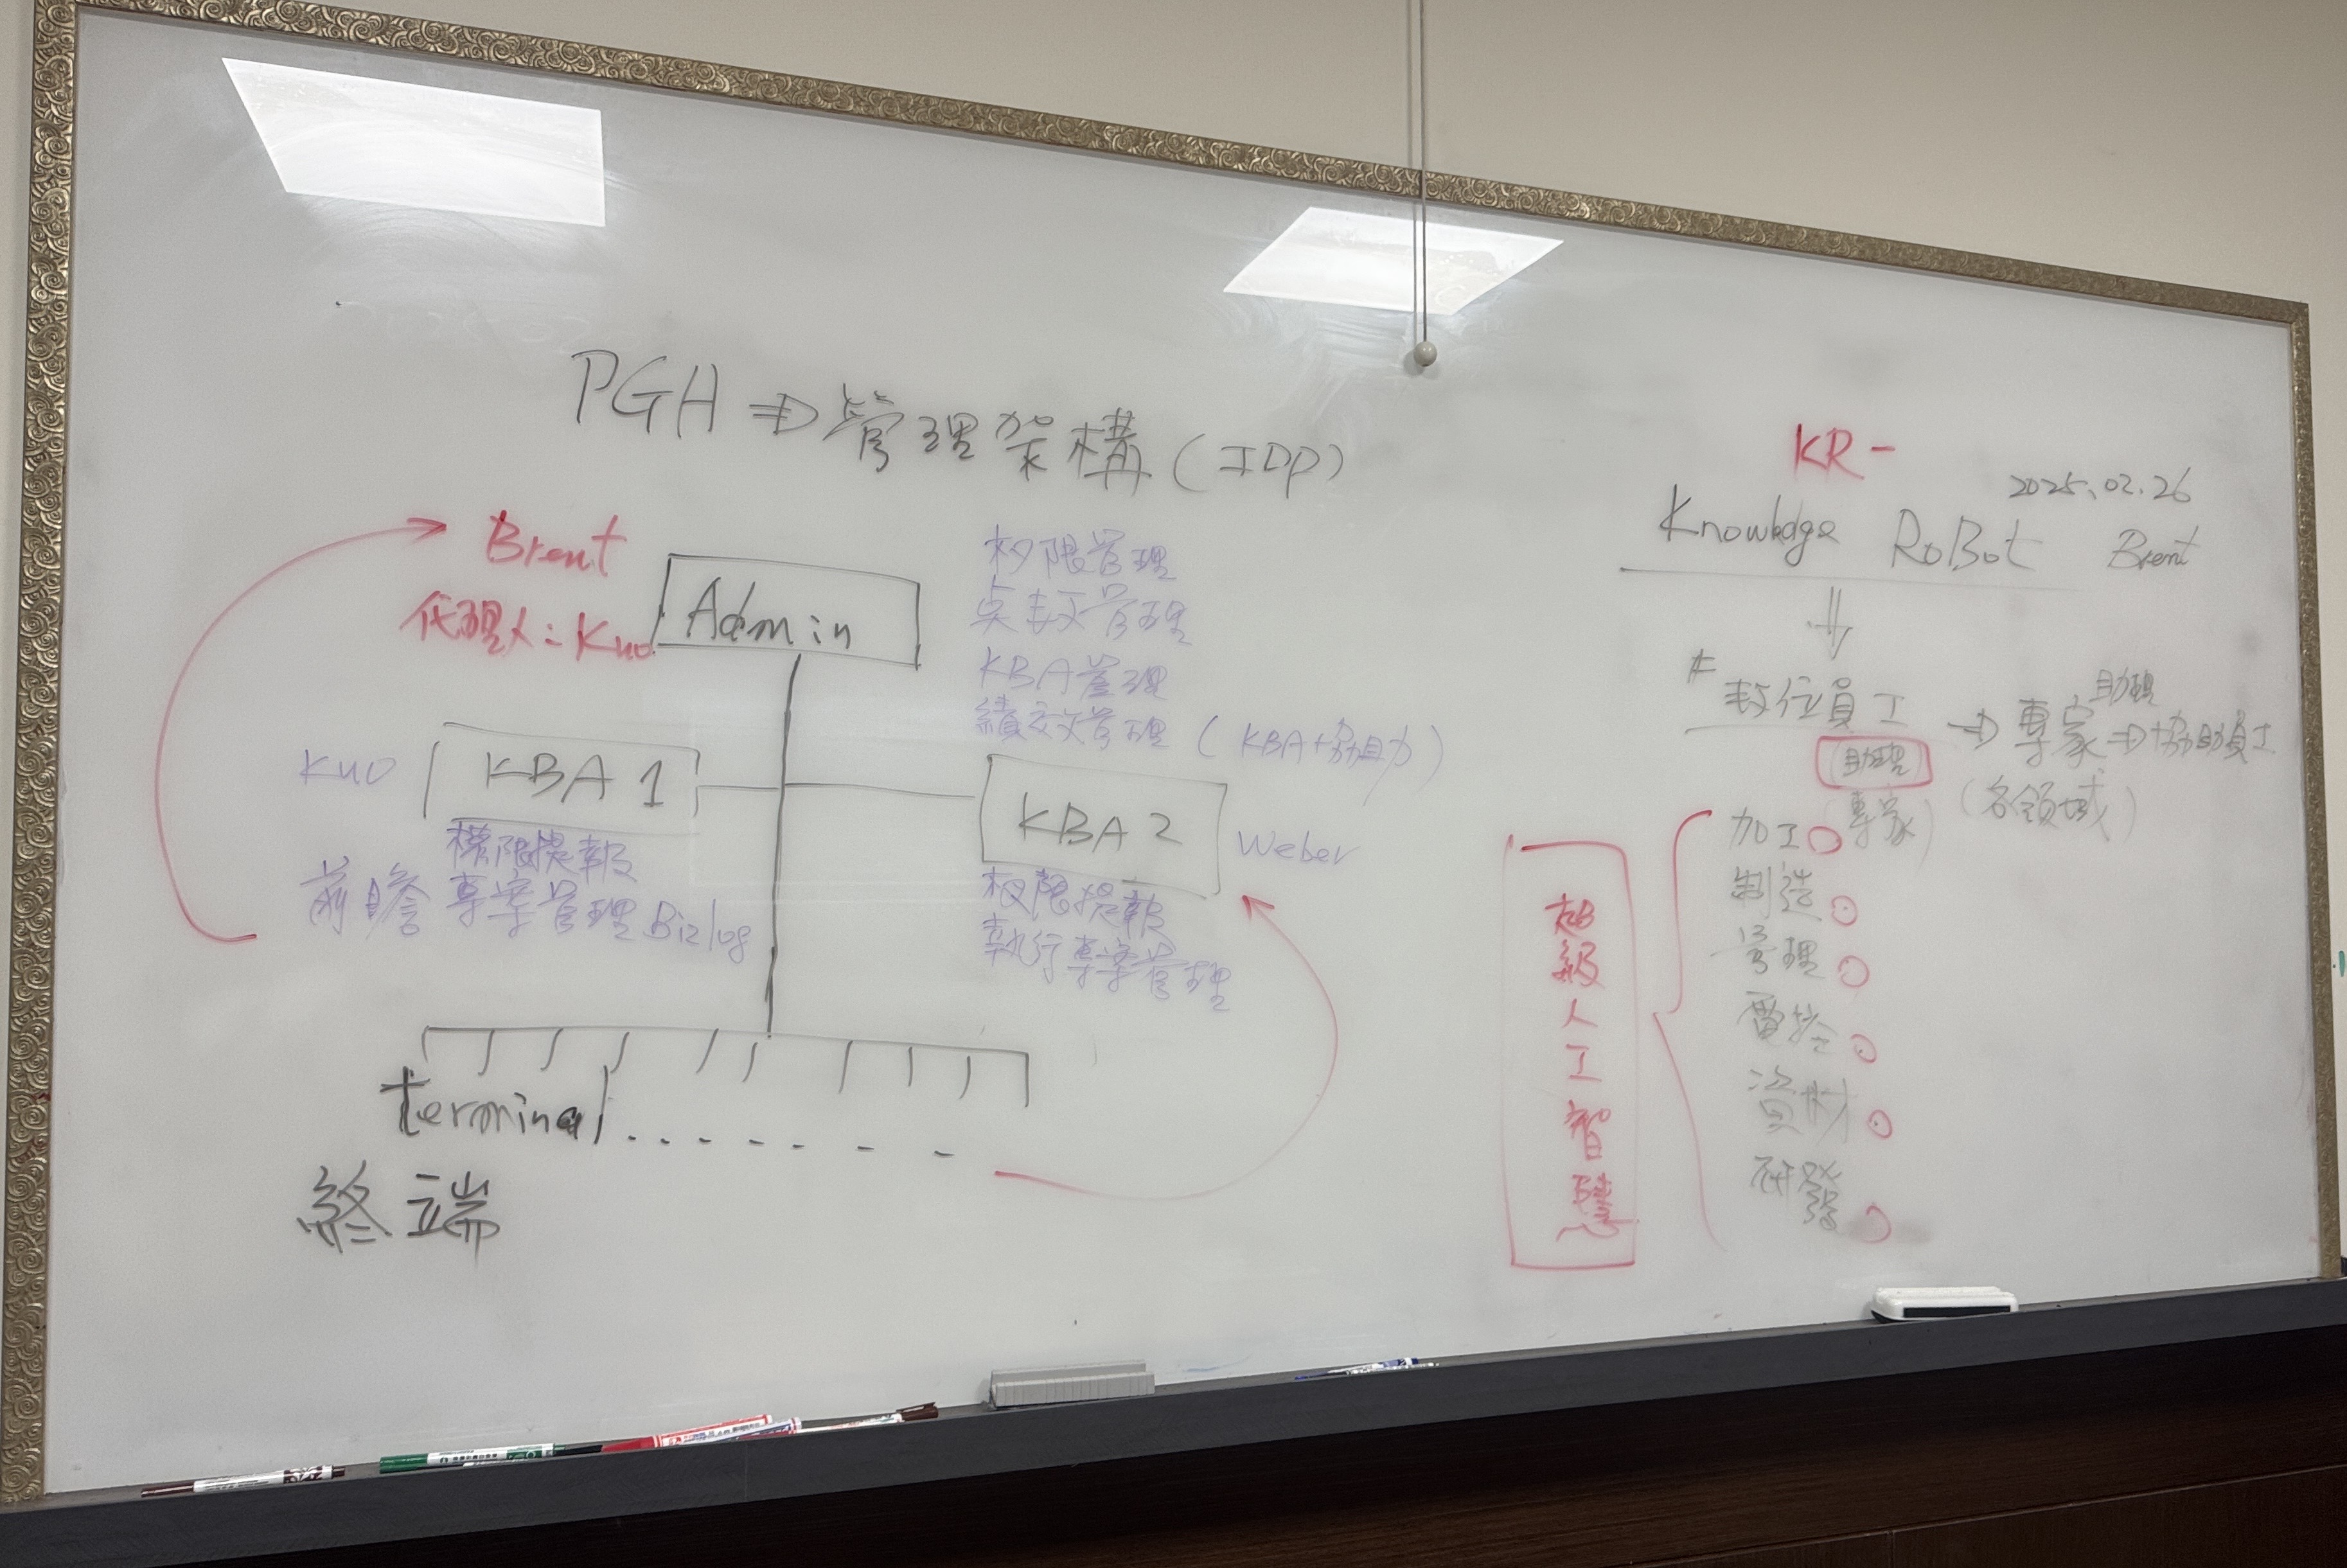 PGH ⇒ 管理架構 (IDP)
Brent
代理人: Kuo
Admin
权限管理
点数管理
KBA管理
績效管理 (KBA+協助)
Kuo
KBA 1
權限提報
前瞻 專案管理 Bizlog
KBA 2
Weber
权限提報
執行專案管理
terminal . . . - - - - -
終端
KR-
2025.02.26
Knowledge RoBot
Brent
# 数位員工 ⇒ 專家助理 ⇒ 協助員工
(助理)
(專家)
(各領域)
超級人工智慧
加工
制造
管理
電控
資材
研發